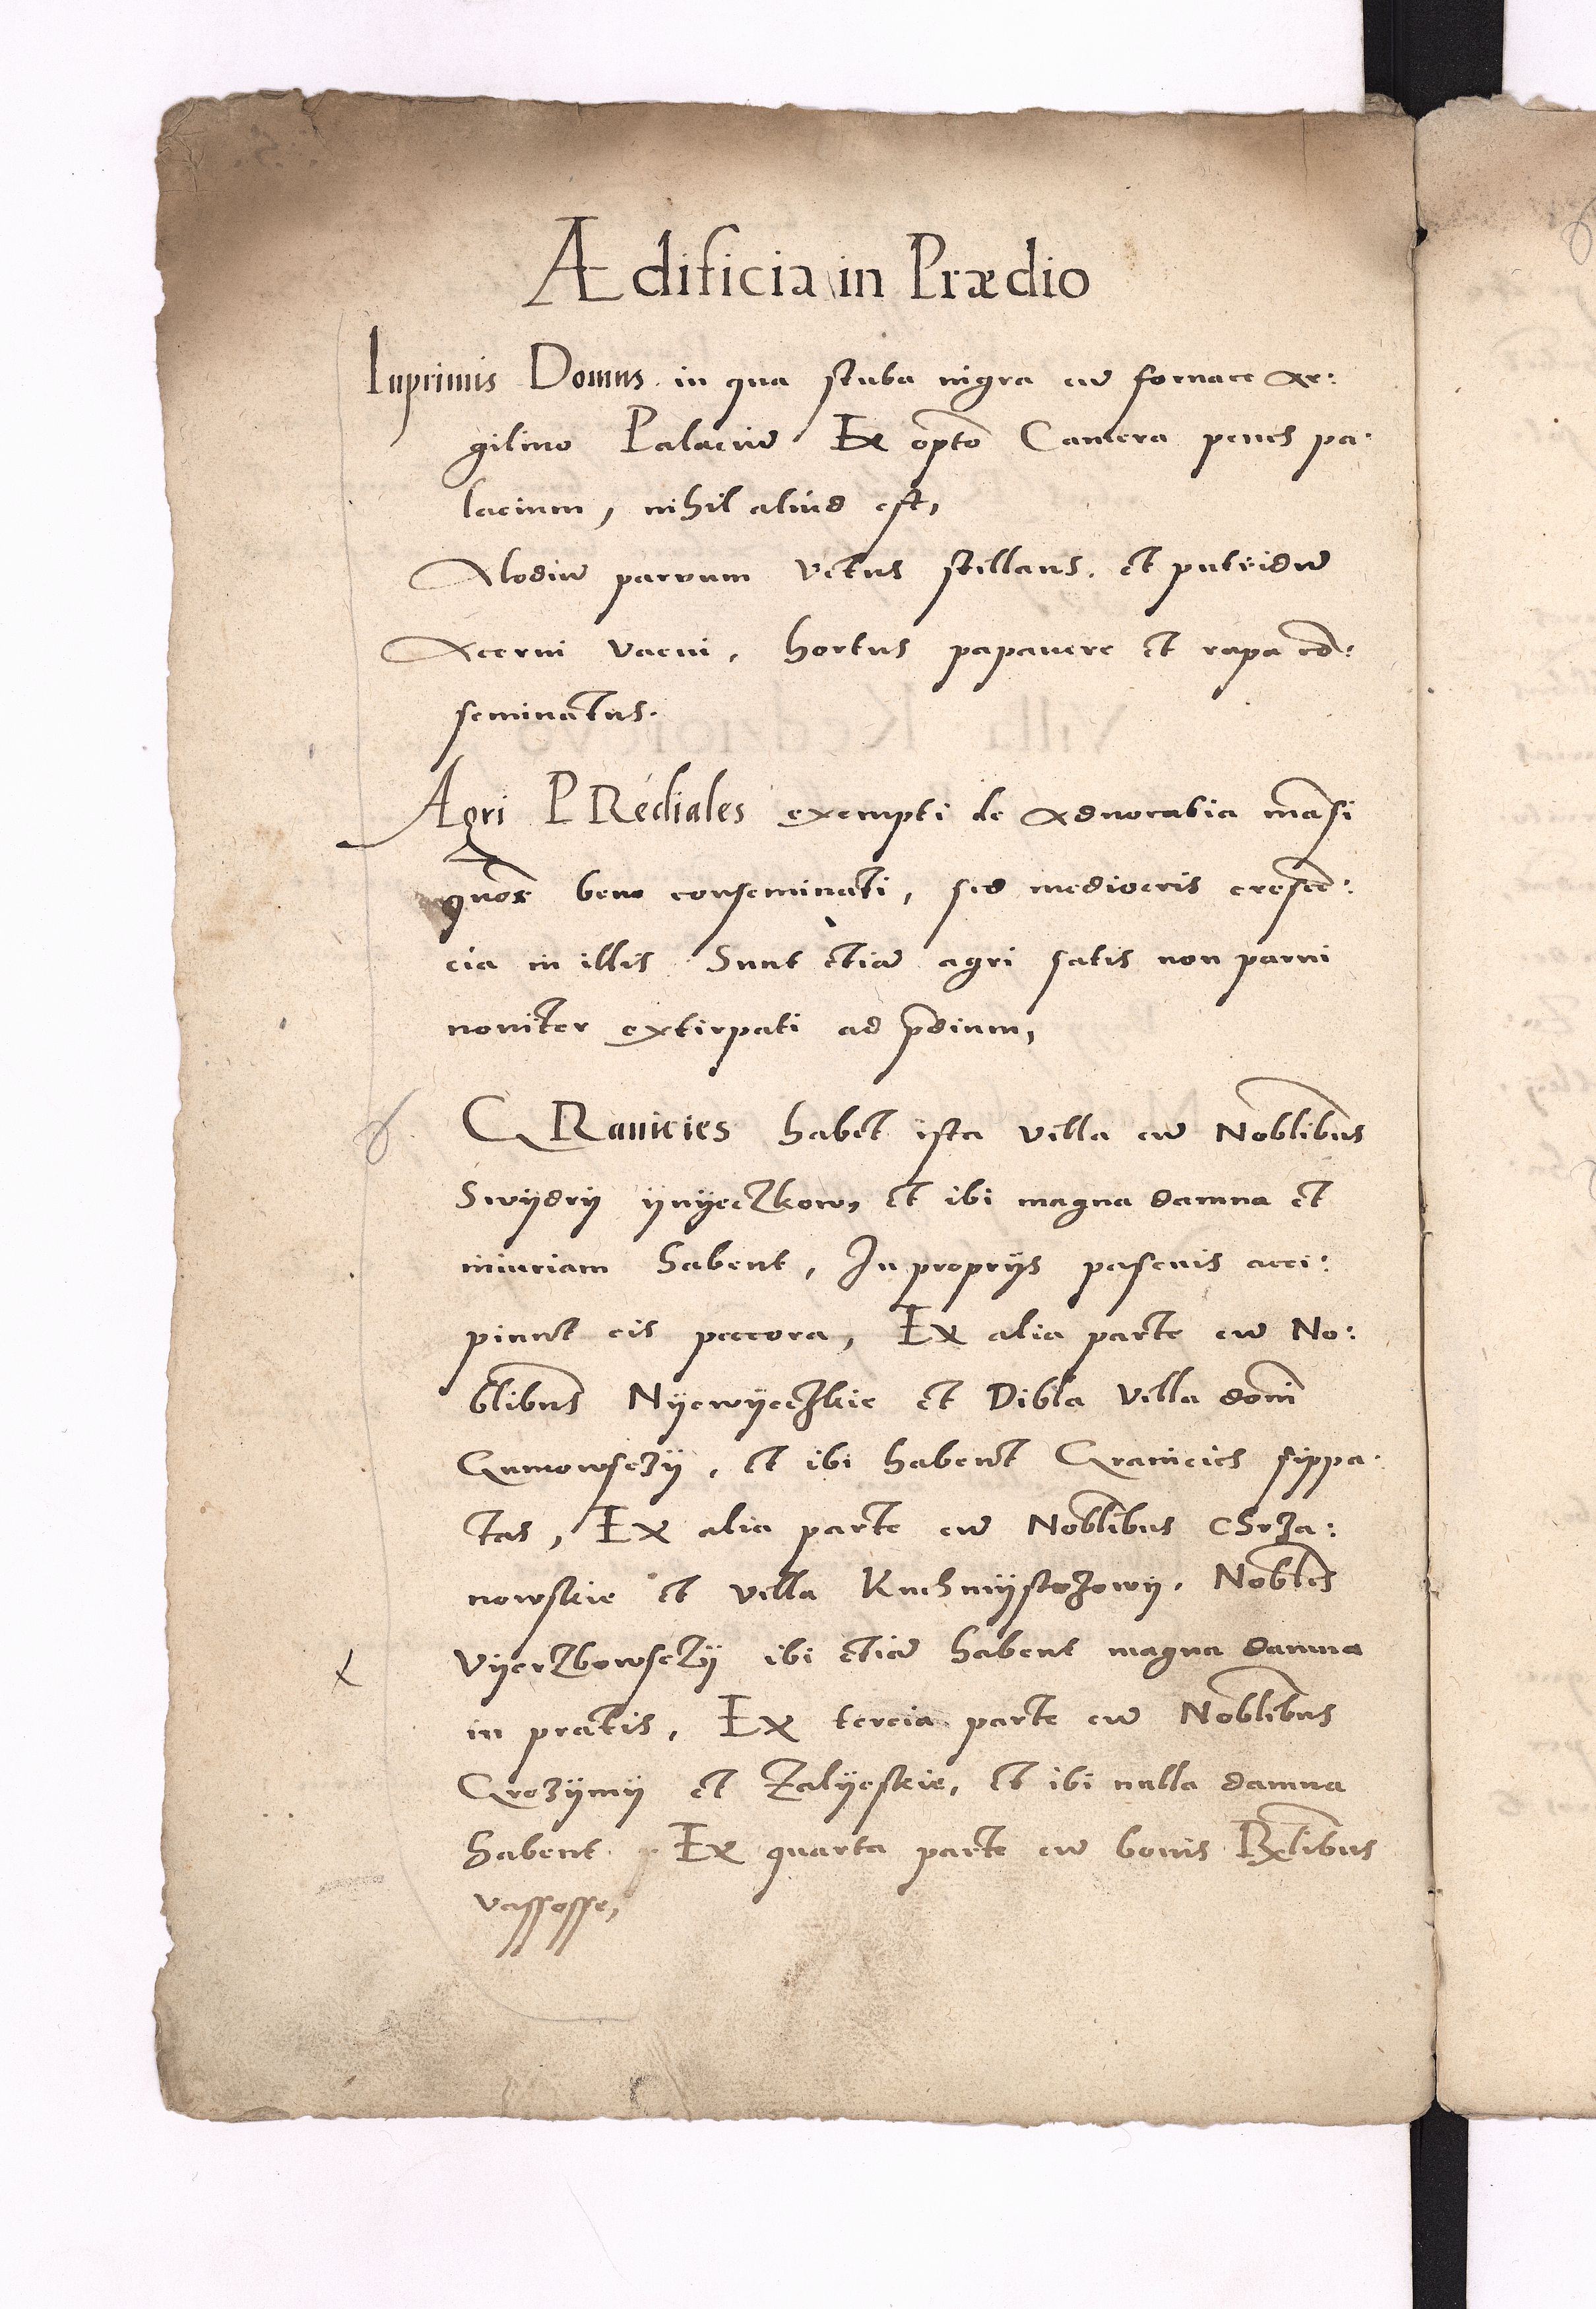 Ædificia in Prædio
Inprimis Domus in qua stuba nigra cū fornace ar:
gilino Palaciū Ex opto Camera penes pa:
lacium, nihil aliud est,
Alodiū parvum vetus stillans, et putridū
Acervi vacui, hortus papavere et rapa cō:
seminatus.
Agri PRediales exempti de advocatia mãsi
quor bene conseminati, sed mediocris crescē:
cia in illis Sunt etiā agri satis non parvi
noviter extirpati ad pdium,
GRanicies habet ista villa cū Noblibus
Swydry ynyeczkow, et ibi magna damna et
iniuriam habent, In proprijs pascuis acci:
piunt eis peccora, Ex alia parte cū No:
blibus Nyewyeczkie et Dibla villa domi
Gumowsczy, et ibi habent Granicies sippa:
tas, Ex alia parte cū Noblibus Chrza:
nowskie et villa Kuchmystrzowy, Nobles
Vyerzbowsczy ibi etiā habent magna damna
in pratis, Ex tercia parte cū Noblibus
Grozymy et Zalyeskie, et ibi nulla damna
habent, Ex quarta parte cū bonis Rxlibus
vassosse,